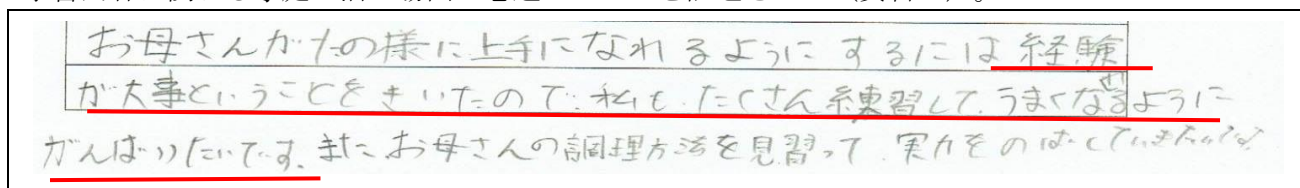 お母さんがたの様に上手になれるようにするには経験
が大事ということをきいたので、私も、たくさん練習して、うまくなるように
がんばりたいです。また、お母さんの調理方法を見習って、実力をのばしていきたいです